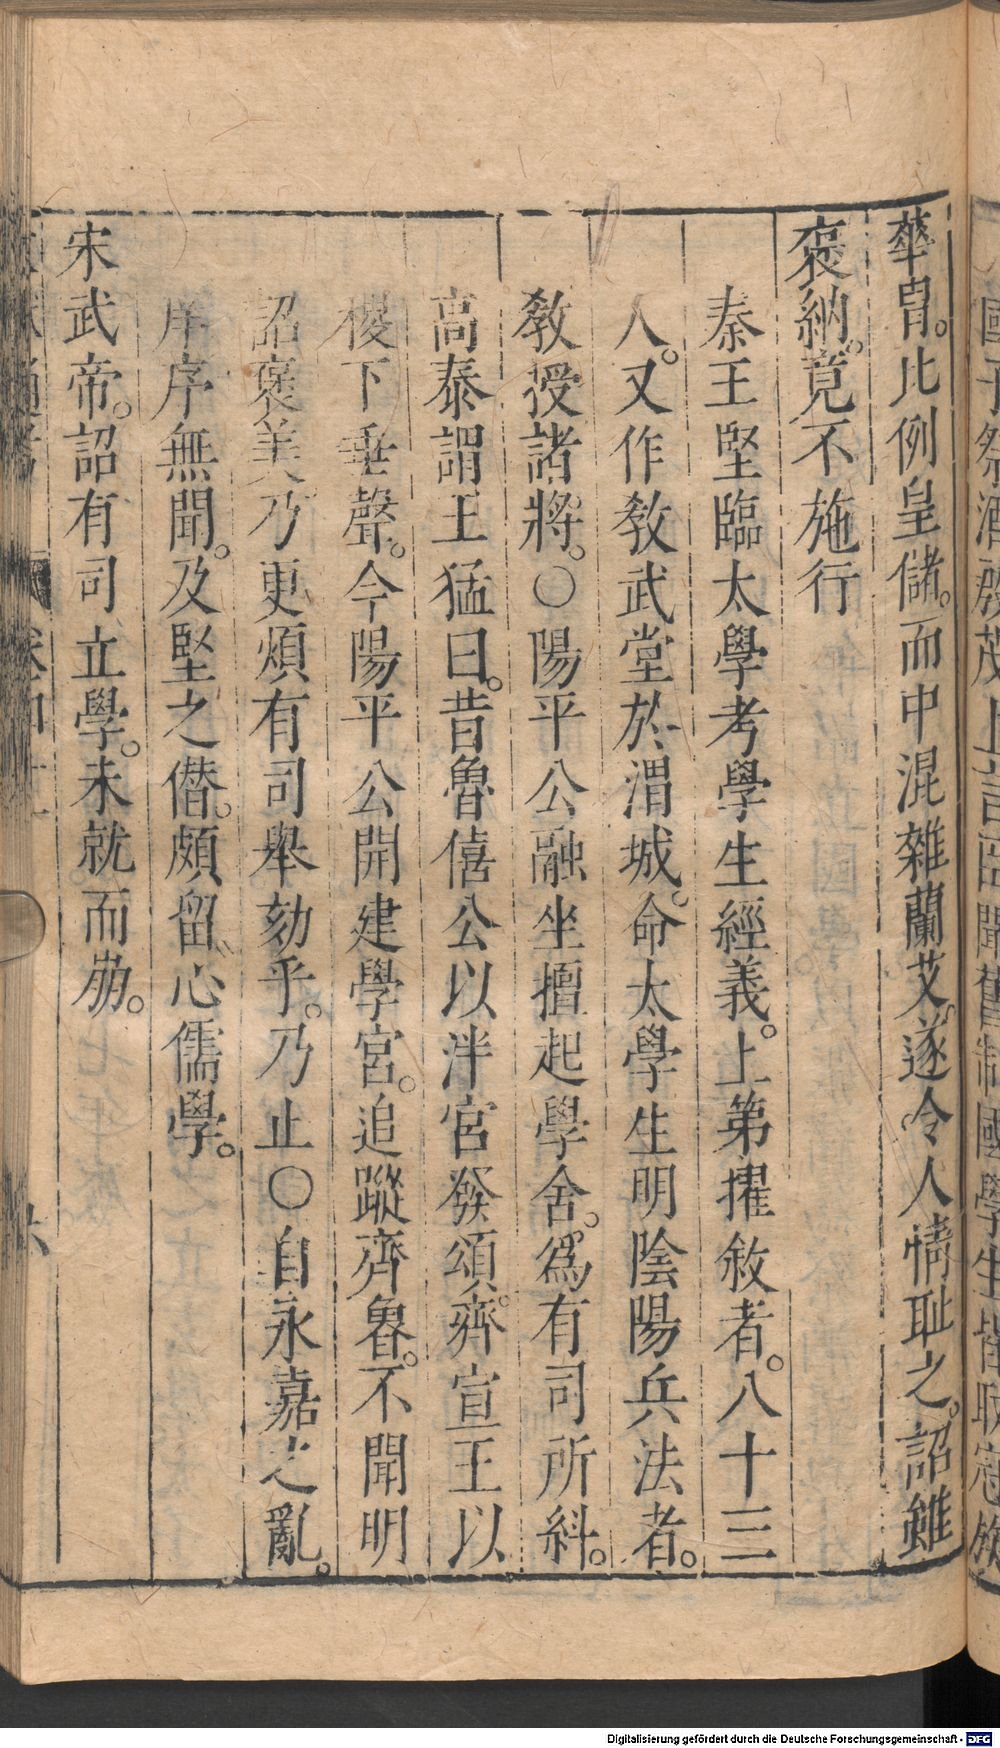 華胄。比例皇儲。而中混雜蘭艾。遂令人情耻之。詔雖
褒納。竟不施行
秦王堅臨太學考學生經義。上第擢敘者。八十三
人。又作敎武堂於渭城。命太學生明陰陽兵法者。
敎授諸將。○陽平公融坐擅起學舍。爲有司所糾。
高泰謂王猛曰。昔魯僖公以泮宮發頌。齊宣王以
稷下垂聲。今陽平公開建學宮。追蹤齊魯。不聞明
詔褒美乃更煩有司舉劾乎。乃止○自永嘉之亂。
庠序無聞。及堅之僣。頗留心儒學。
宋武帝。詔有司立學。未就而崩。
國子祭酒殷茂上言臣聞舊制國學生皆取冠族
Digitalisierung gefördert durch die Deutsche Forschungsgemeinschaft - DFG